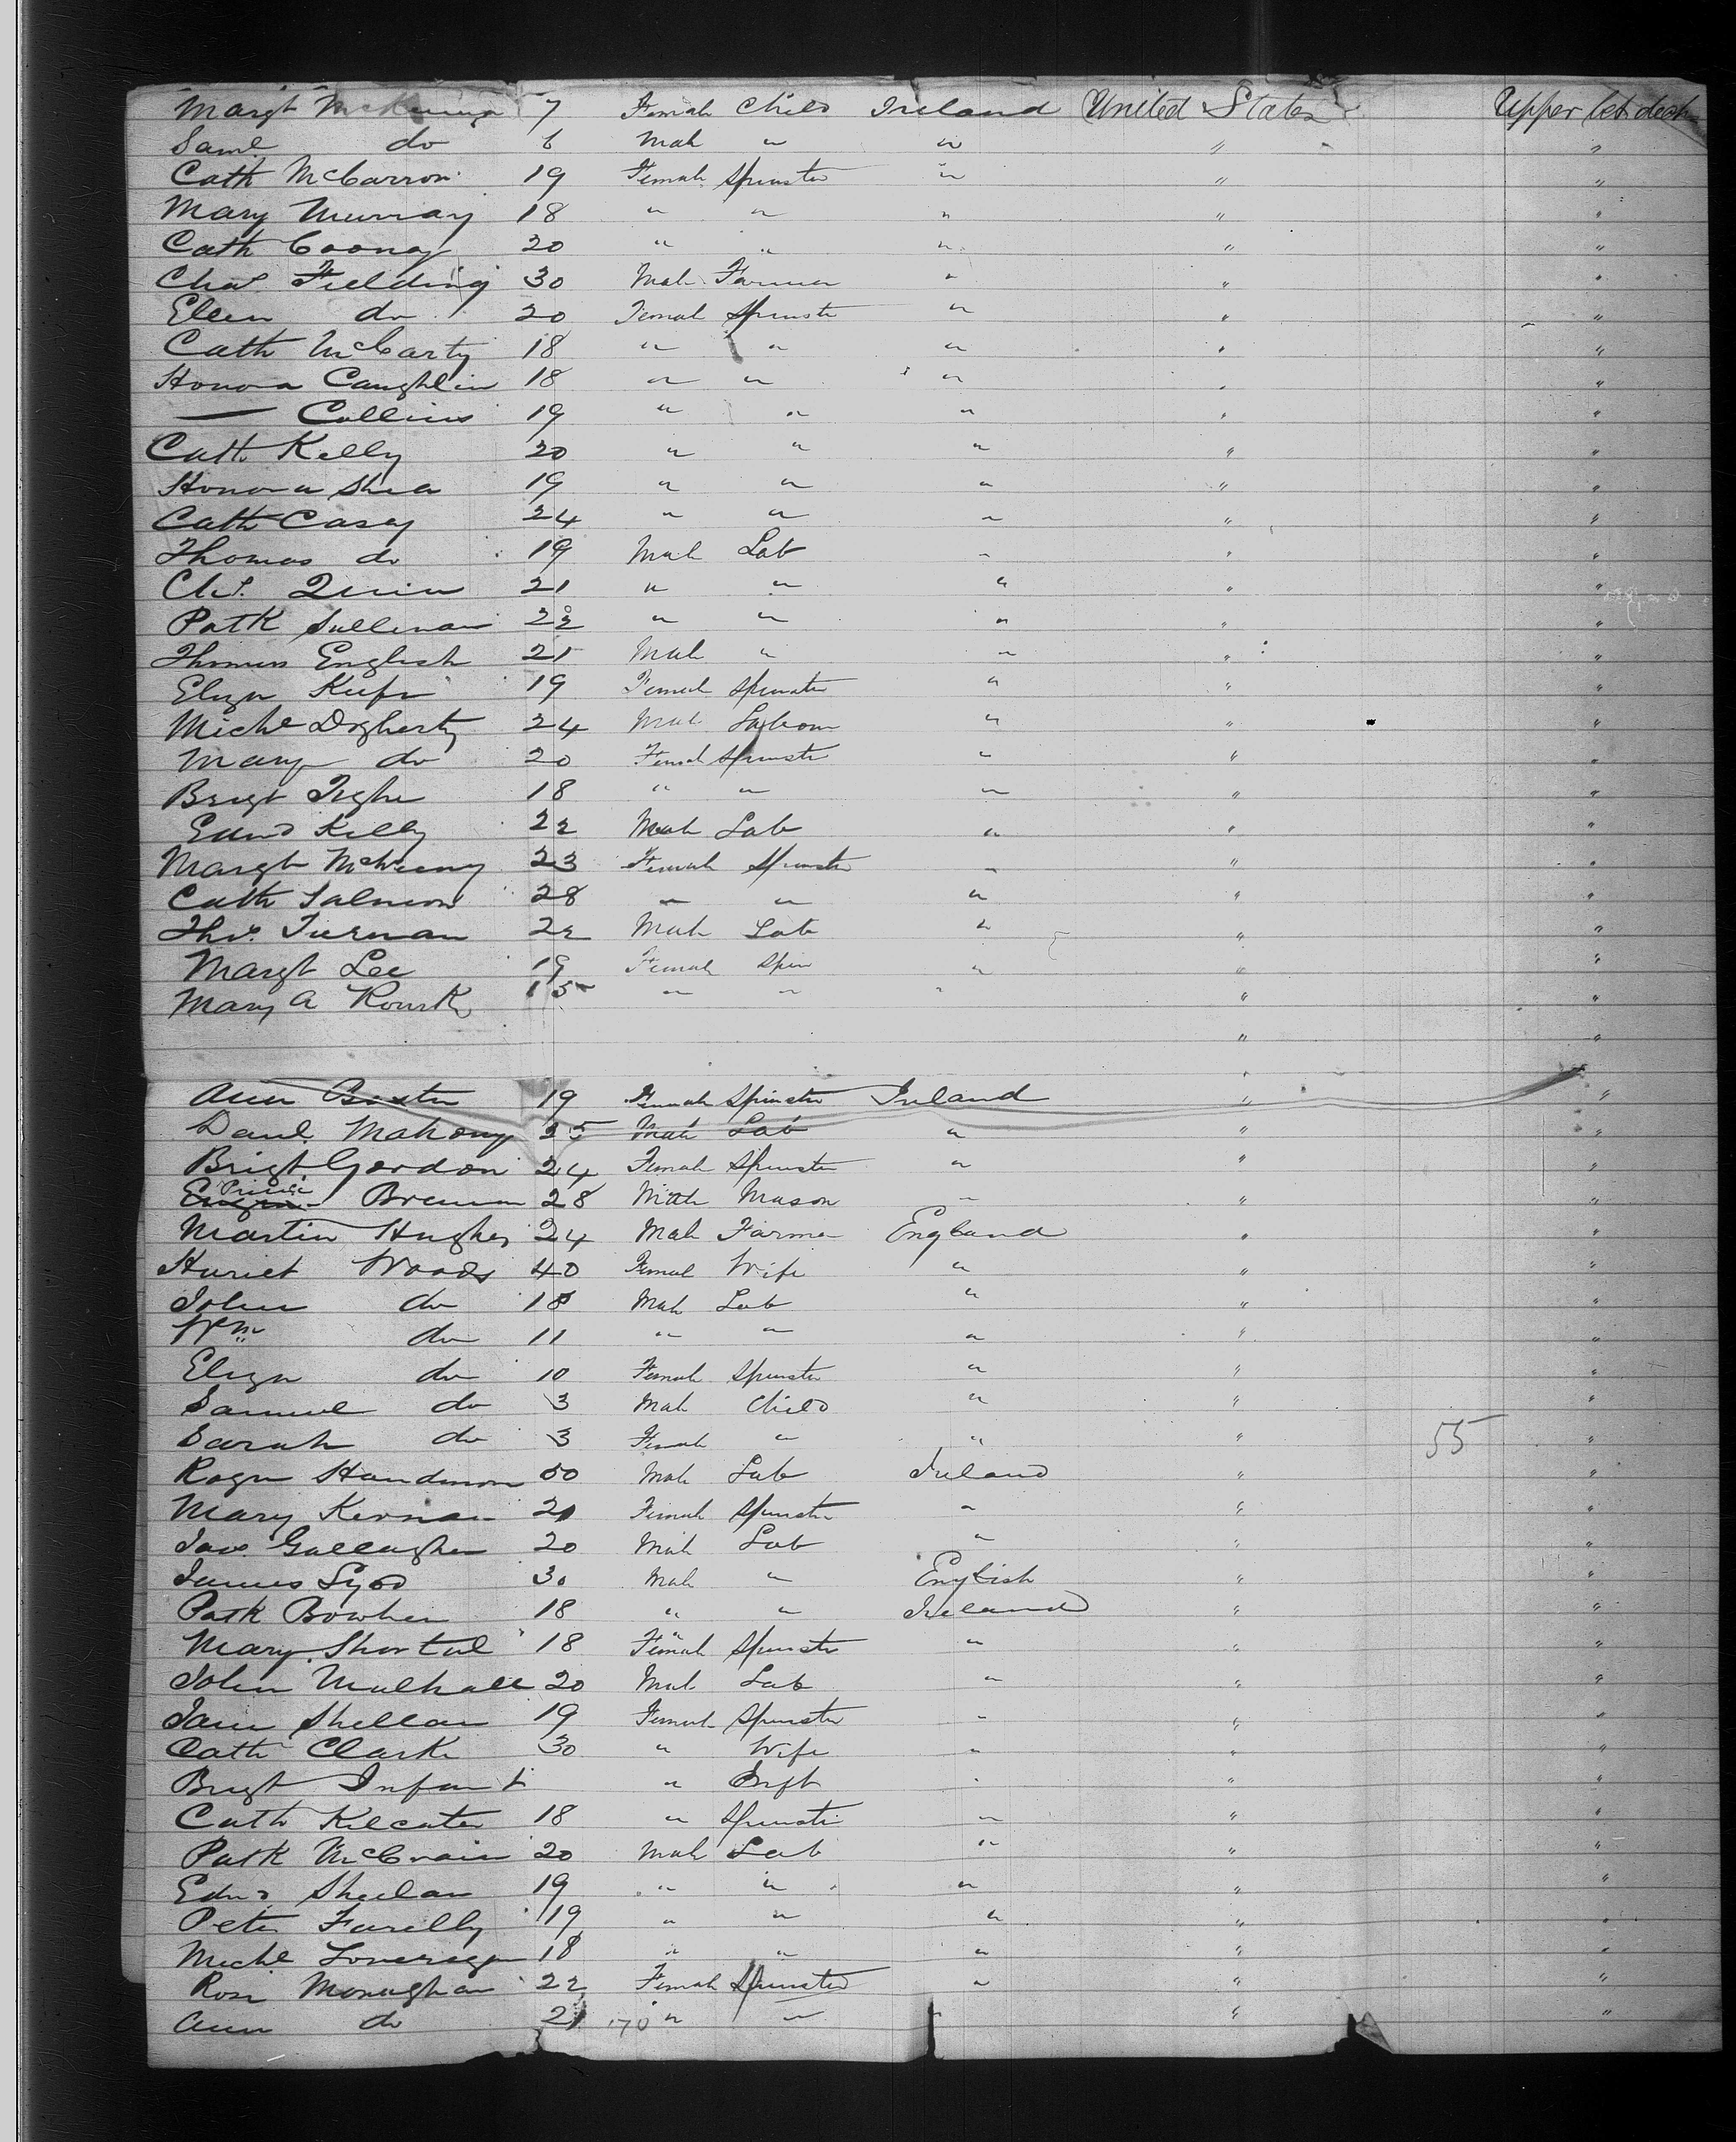 Margt McKenna 7 Female Child Ireland United States Upper bet deck
Saml do 6 Male " " " "
Cath McCarron 19 Female Spinster " " "
Mary Murray 18 " " " " "
Cath Cooney 20 " " " " "
Chas. Fielding 30 Male Farmer " " "
Ellen do 20 Female Spinster " " "
Cath McCarty 18 " " " " "
Honora Caughlin 18 " " " " "
— Collins 19 " " " " "
Cath Kelly 20 " " " " "
Honora Shea 19 " " " " "
Cath Casey 24 " " " " "
Thomas do 19 Male Lab " " "
Chs. Quinn 21 " " " " "
Patk Sullivan 22 " " " " "
Thomas English 21 Male " " " "
Eliza Keefe 19 Female Spinster " " "
Michl Dogherty 24 Male Labour " " "
Mary do 20 Female Spinster " " "
Brigt Tighe 18 " " " " "
Edmd Kelly 22 Male Lab " " "
Margt 23 Female Spinster " " "
Cath Salmon 28 " " " " "
Thos. Tiernan 22 Male Lab " " "
Margt Lee 19 Female Spin " " "
Mary A Rourk 15 " " " " "
" "
"
Ann Baxter 19 Female Spinster Ireland " "
Danl. Mahony 25 Male Lab " " "
Brigt Gordon 24 Female Spinster " " "
Brennan 28 Male Mason " " "
Martin Hughes 24 Male Farmer England " "
Hariet Woods 40 Female Wife " " "
John do 18 Male Lab " " "
Wm do 11 " " " " "
Eliza do 10 Female Spinster " " "
Samuel do 3 Male Child " " "
Sarah do 3 Female " " " 55 "
Roger 50 Male Lab Ireland " "
Mary Kernan 20 Female Spinster " " "
Jas. Gallagher 20 Male Lab " " "
James 30 Male " English " "
Patk Bowhen 18 " " Ireland " "
Mary Shortal 18 Female Spinster " " "
John Mulhall 20 Male Lab " " "
Jane Shellan 19 Female Spinster " " "
Cath Clark 30 " Wife " " "
Brigt Infant " Inft " " "
Cath Kilcater 18 " Spinster " " "
Patk McCrain 20 Male Lab " " "
Edmd Sheelan 19 " " " " "
Peter Farelly 19 " " " " "
Michl 18 " " " " "
Rose Monaghan 22 Female Spinster " " "
Ann do 21 170 " " " " "